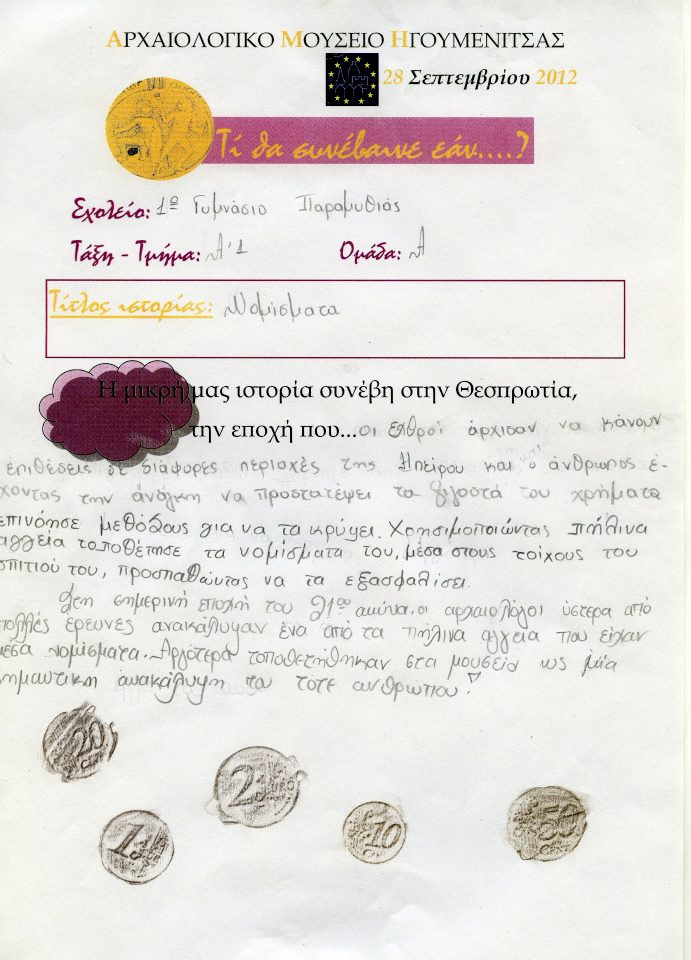 ΑΡΧΑΙΟΛΟΓΙΚΟ ΜΟΥΣΕΙΟ ΗΓΟΥΜΕΝΙΤΣΑΣ
28 Σεπτεμβρίου 2012
Τί θα συνέβαινε εάν....?
Σχολείο: 1º Γυμνάσιο Παραμυθιάς
Τάξη - Τμήμα: Α'1 Ομάδα: Α
Τίτλος ιστορίας: Νομίσματα
Η μικρή μας ιστορία συνέβη στην Θεσπρωτία,
την εποχή που... οι εχθροί άρχισαν να κάνουν
επιθέσεις σε διάφορες περιοχές της Ηπείρου και ο άνθρωπος έ-
χοντας την ανάγκη να προστατέψει τα λιγοστά του χρήματα
επινόησε μεθόδους για να τα κρύψει. Χρησιμοποιώντας πήλινα
αγγεία τοποθέτησε τα νομίσματα του, μέσα στους τοίχους του
σπιτιού του, προσπαθώντας να τα εξασφαλίσει.
Στη σημερινή εποχή του 21ου αιώνα, οι αρχαιολόγοι ύστερα από
πολλές έρευνες ανακάλυψαν ένα από τα πήλινα αγγεία που είχαν
μέσα νομίσματα. Αργότερα τοποθετήθηκαν στα μουσεία ως μία
σημαντική ανακάλυψη του τότε ανθρώπου!
20 CENT
2 EURO
1
10
50